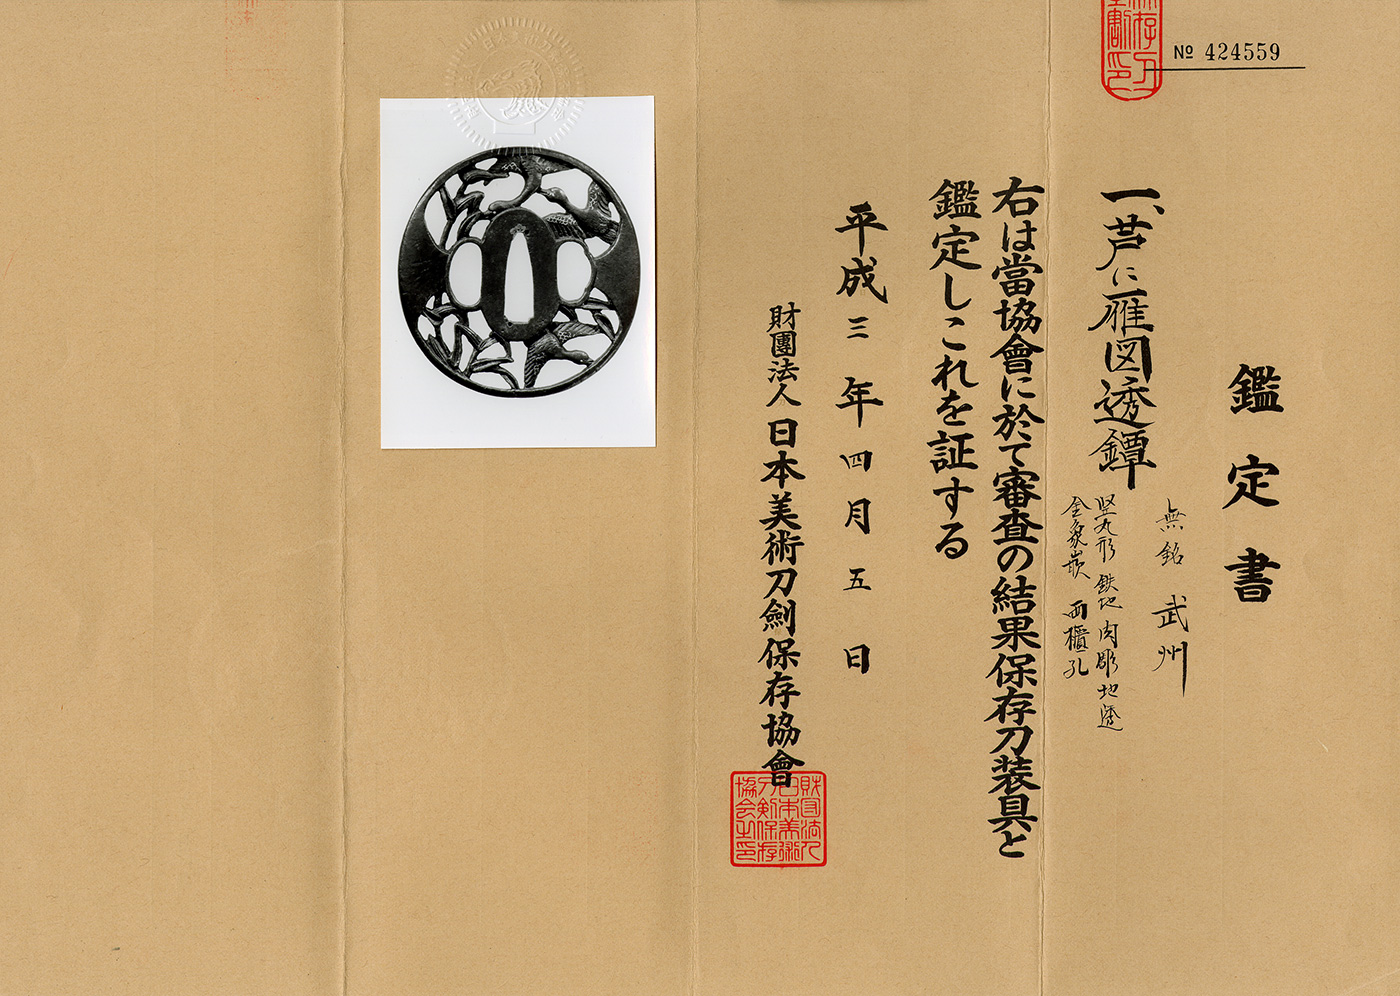 № 424559
鑑定書
一、芦に雁図透鐔
無銘 武州
竪丸形 鉄地 肉彫地透
金象嵌 両櫃孔
右は當協會に於て審査の結果保存刀装具と
鑑定しこれを証する
平成三年四月五日
財團法人 日本美術刀劍保存協會
財団法人
日本美術
刀剣保存
協会之印